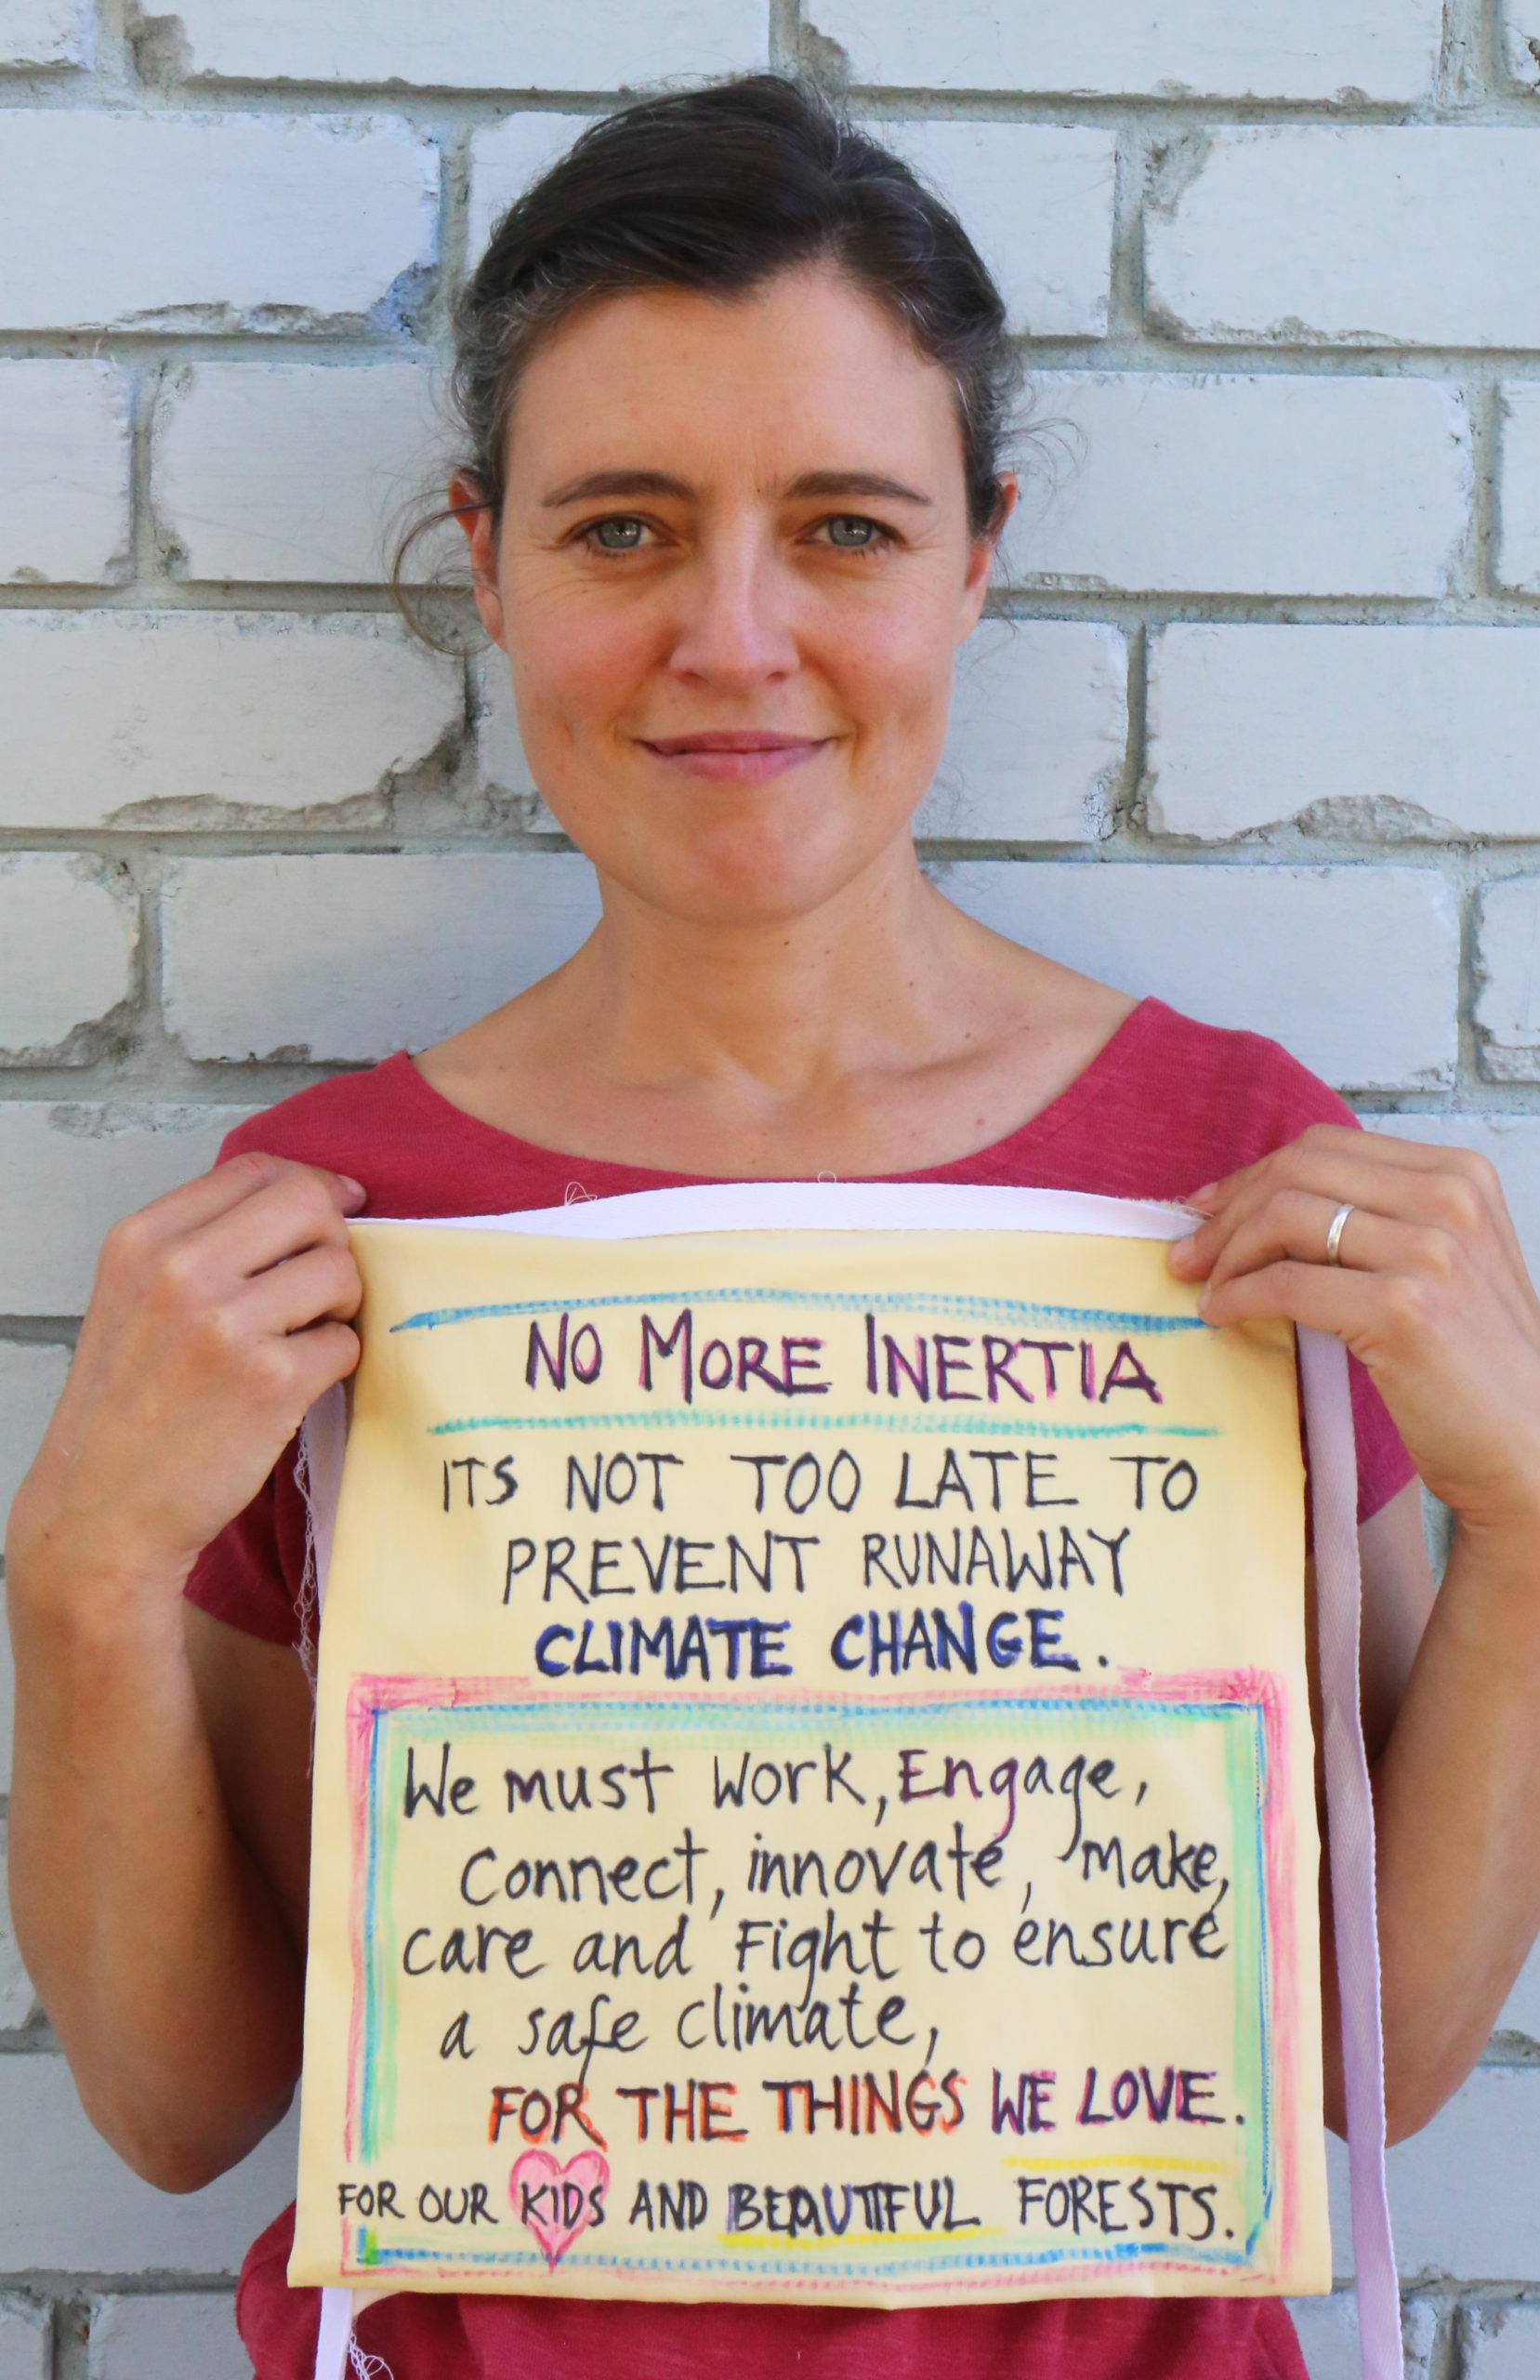 NO MORE INERTIA
ITS NOT TOO LATE TO
PREVENT RUNAWAY
CLIMATE CHANGE.
We must work, Engage,
Connect, innovate, make,
care and Fight to ensure
a safe climate,
FOR THE THINGS WE LOVE.
FOR OUR KIDS AND BEAUTIFUL FORESTS.